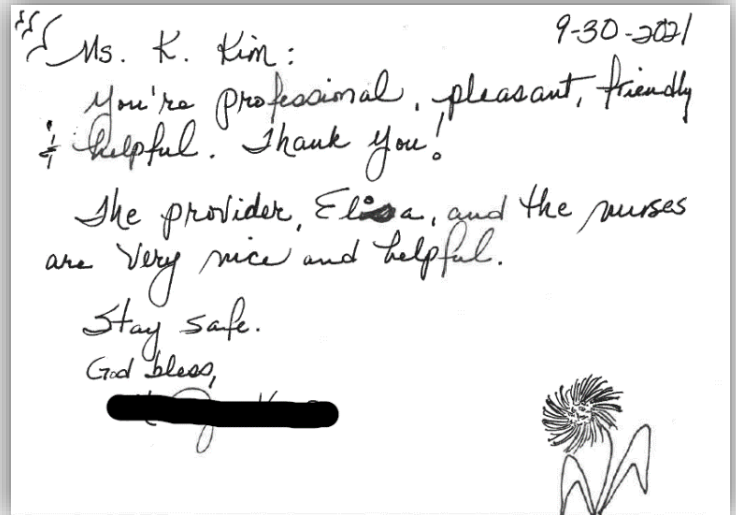 9-30-2021
Ms. K. Kim:
You're professional, pleasant, friendly
& helpful. Thank you!
The provider, Elisa, and the nurses
are very nice and helpful.
Stay safe.
God bless,